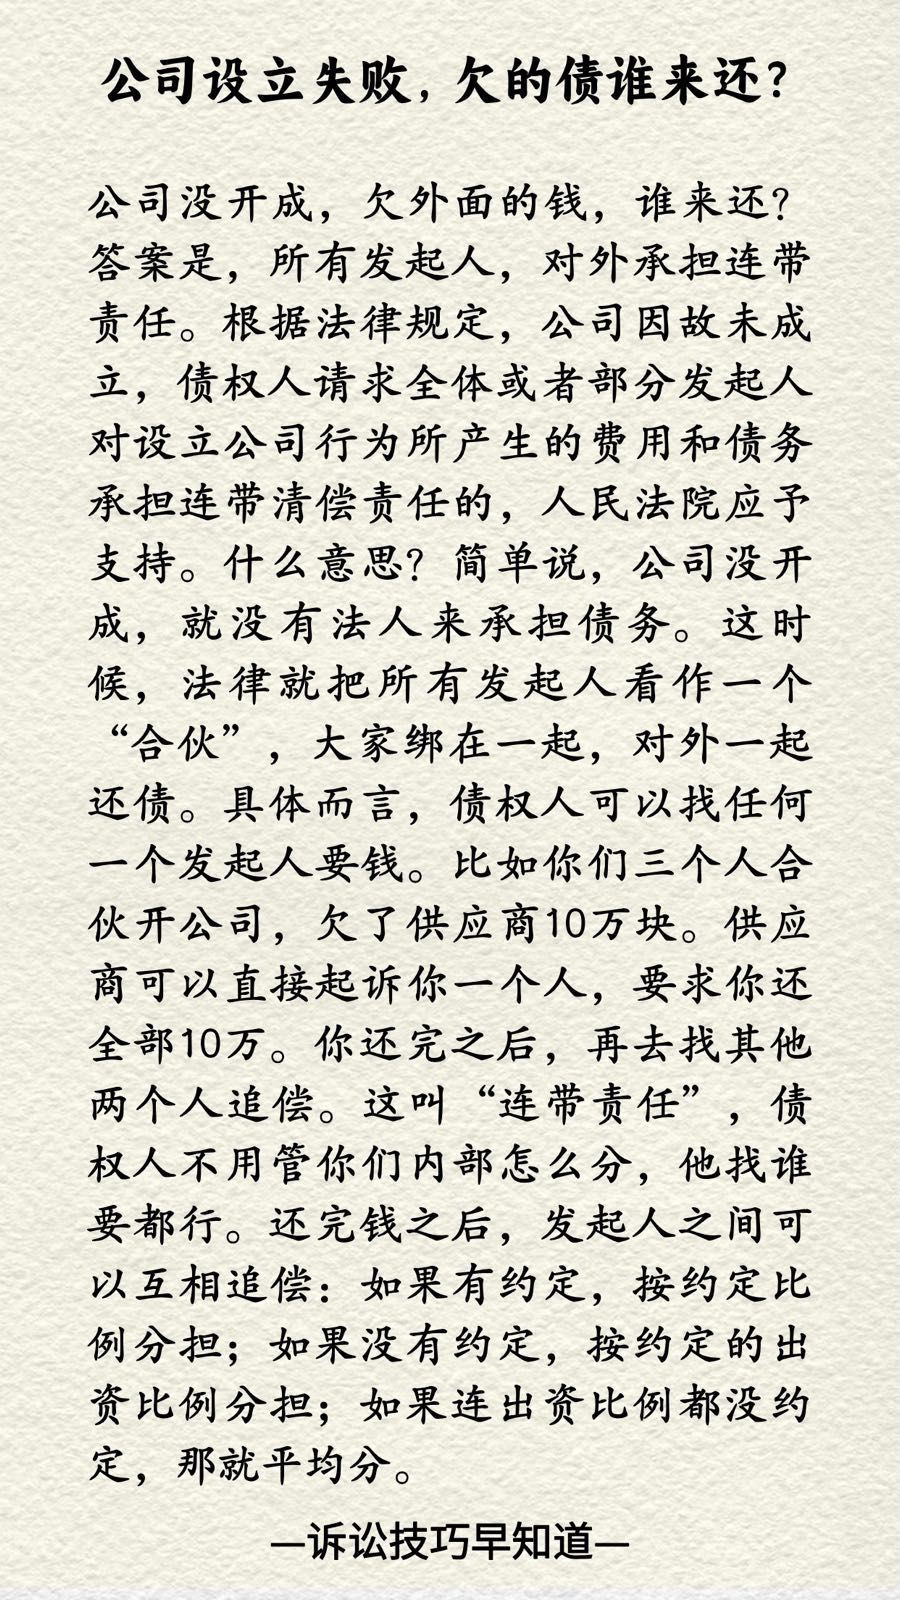 公司设立失败，欠的债谁来还？
公司没开成，欠外面的钱，谁来还？
答案是，所有发起人，对外承担连带
责任。根据法律规定，公司因故未成
立，债权人请求全体或者部分发起人
对设立公司行为所产生的费用和债务
承担连带清偿责任的，人民法院应予
支持。什么意思？简单说，公司没开
成，就没有法人来承担债务。这时
候，法律就把所有发起人看作一个
“合伙”，大家绑在一起，对外一起
还债。具体而言，债权人可以找任何
一个发起人要钱。比如你们三个人合
伙开公司，欠了供应商10万块。供应
商可以直接起诉你一个人，要求你还
全部10万。你还完之后，再去找其他
两个人追偿。这叫“连带责任”，债
权人不用管你们内部怎么分，他找谁
要都行。还完钱之后，发起人之间可
以互相追偿：如果有约定，按约定比
例分担；如果没有约定，按约定的出
资比例分担；如果连出资比例都没约
定，那就平均分。
—诉讼技巧早知道—